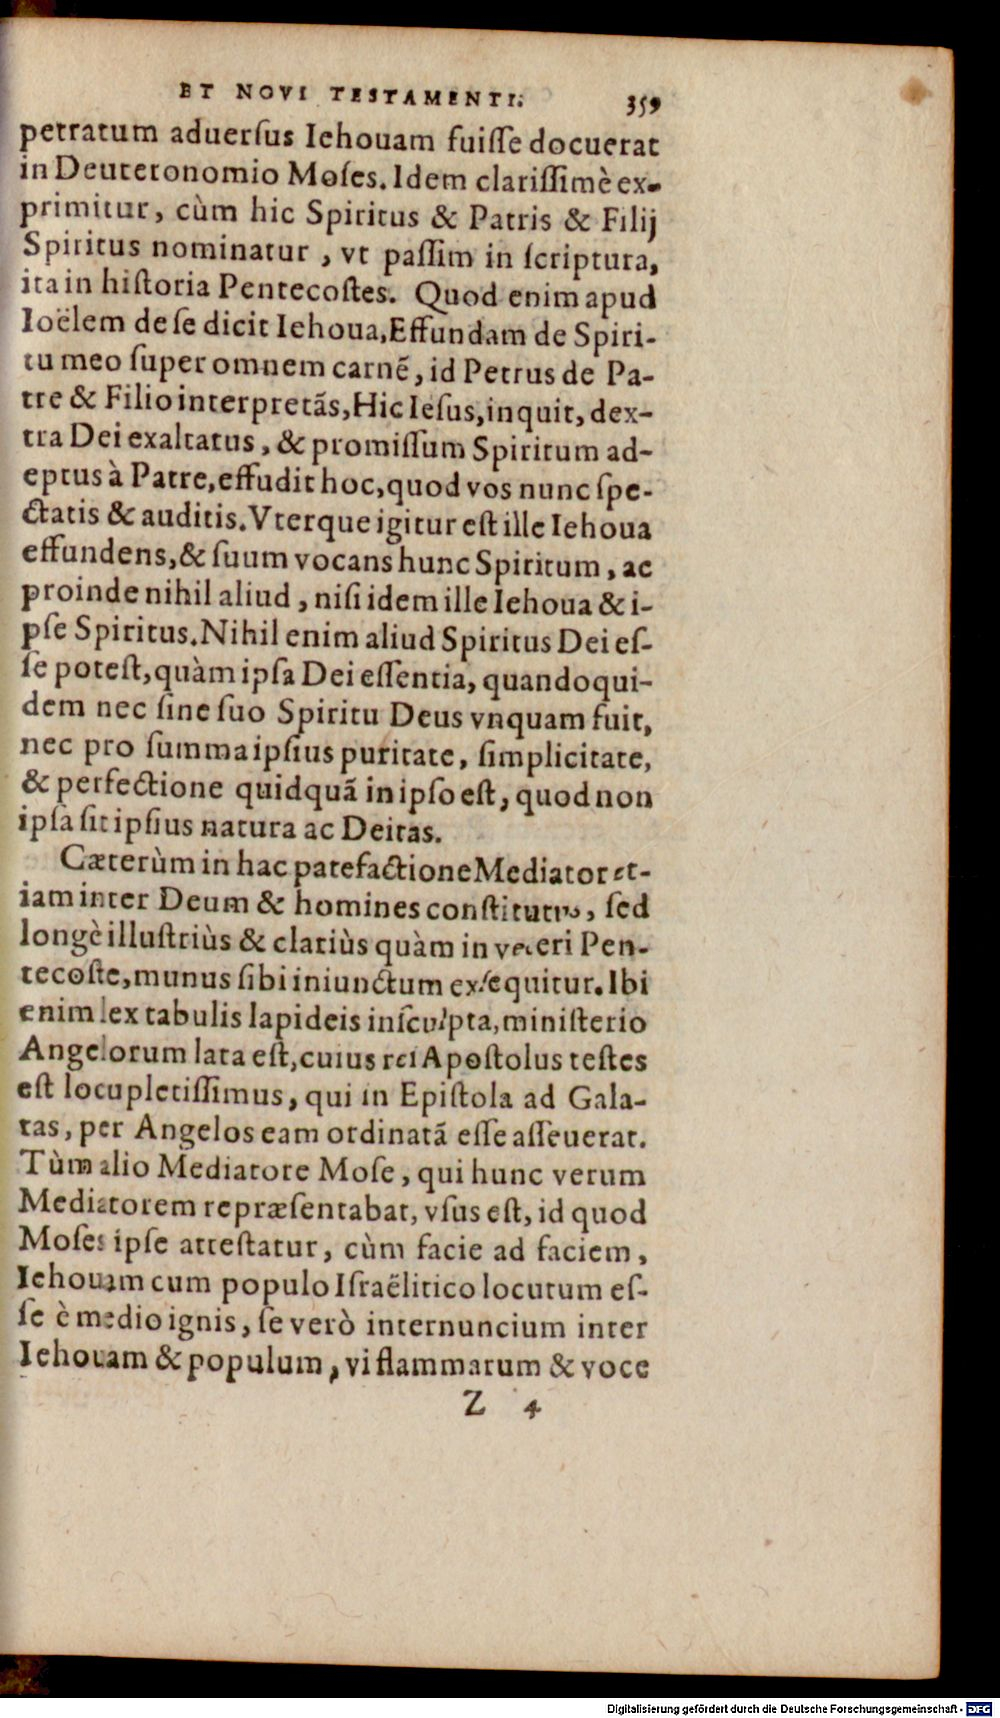 ET NOVI TESTAMENTI. 359
petratum aduerſus Iehouam fuiſſe docuerat
in Deuteronomio Moſes. Idem clariſſimè ex-
primitur, cùm hic Spiritus & Patris & Filij
Spiritus nominatur, vt paſſim in ſcriptura,
ita in hiſtoria Pentecoſtes. Quod enim apud
Ioëlem de ſe dicit Iehoua, Effundam de Spiri-
tu meo ſuper omnem carnẽ, id Petrus de Pa-
tre & Filio interpretãs, Hic Ieſus, inquit, dex-
tra Dei exaltatus, & promiſſum Spiritum ad-
eptus à Patre, effudit hoc, quod vos nunc ſpe-
ctatis & auditis. Vterque igitur eſt ille Iehoua
effundens, & ſuum vocans hunc Spiritum, ac
proinde nihil aliud, niſi idem ille Iehoua & i-
pſe Spiritus. Nihil enim aliud Spiritus Dei eſ-
ſe poteſt, quàm ipſa Dei eſſentia, quandoqui-
dem nec ſine ſuo Spiritu Deus vnquam fuit,
nec pro ſumma ipſius puritate, ſimplicitate,
& perfectione quidquã in ipſo eſt, quod non
ipſa ſit ipſius natura ac Deitas.
Cæterùm in hac patefactione Mediator et-
iam inter Deum & homines conſtitutus, ſed
longè illuſtriùs & clariùs quàm in veteri Pen-
tecoſte, munus ſibi iniunctum exſequitur. Ibi
enim lex tabulis lapideis inſculpta, miniſterio
Angelorum lata eſt, cuius rei Apoſtolus teſtes
eſt locupletiſſimus, qui in Epiſtola ad Gala-
tas, per Angelos eam ordinatã eſſe aſſeuerat.
Tùm alio Mediatore Moſe, qui hunc verum
Mediatorem repræſentabat, vſus eſt, id quod
Moſes ipſe atteſtatur, cùm facie ad faciem,
Iehouam cum populo Iſraëlitico locutum eſ-
ſe è medio ignis, ſe verò internuncium inter
Iehouam & populum, vi flammarum & voce
Z 4
Digitalisierung gefördert durch die Deutsche Forschungsgemeinschaft - DFG